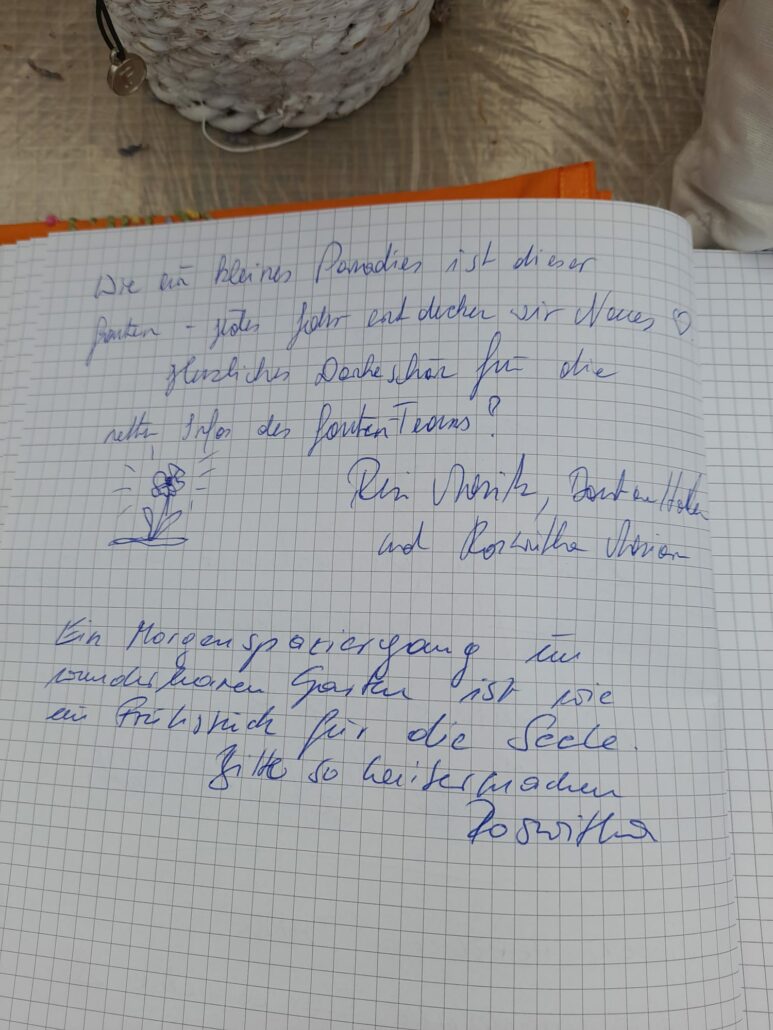 Wie ein kleines Paradies ist dieser
Garten - jedes Jahr entdecken wir Neues
Herzliches Dankeschön für die
netten Infos des Garten Teams!
und Roswitha
Ein Morgenspaziergang im
wunderbaren Garten ist wie
ein Frühstück für die Seele.
Bitte so weitermachen
Roswitha